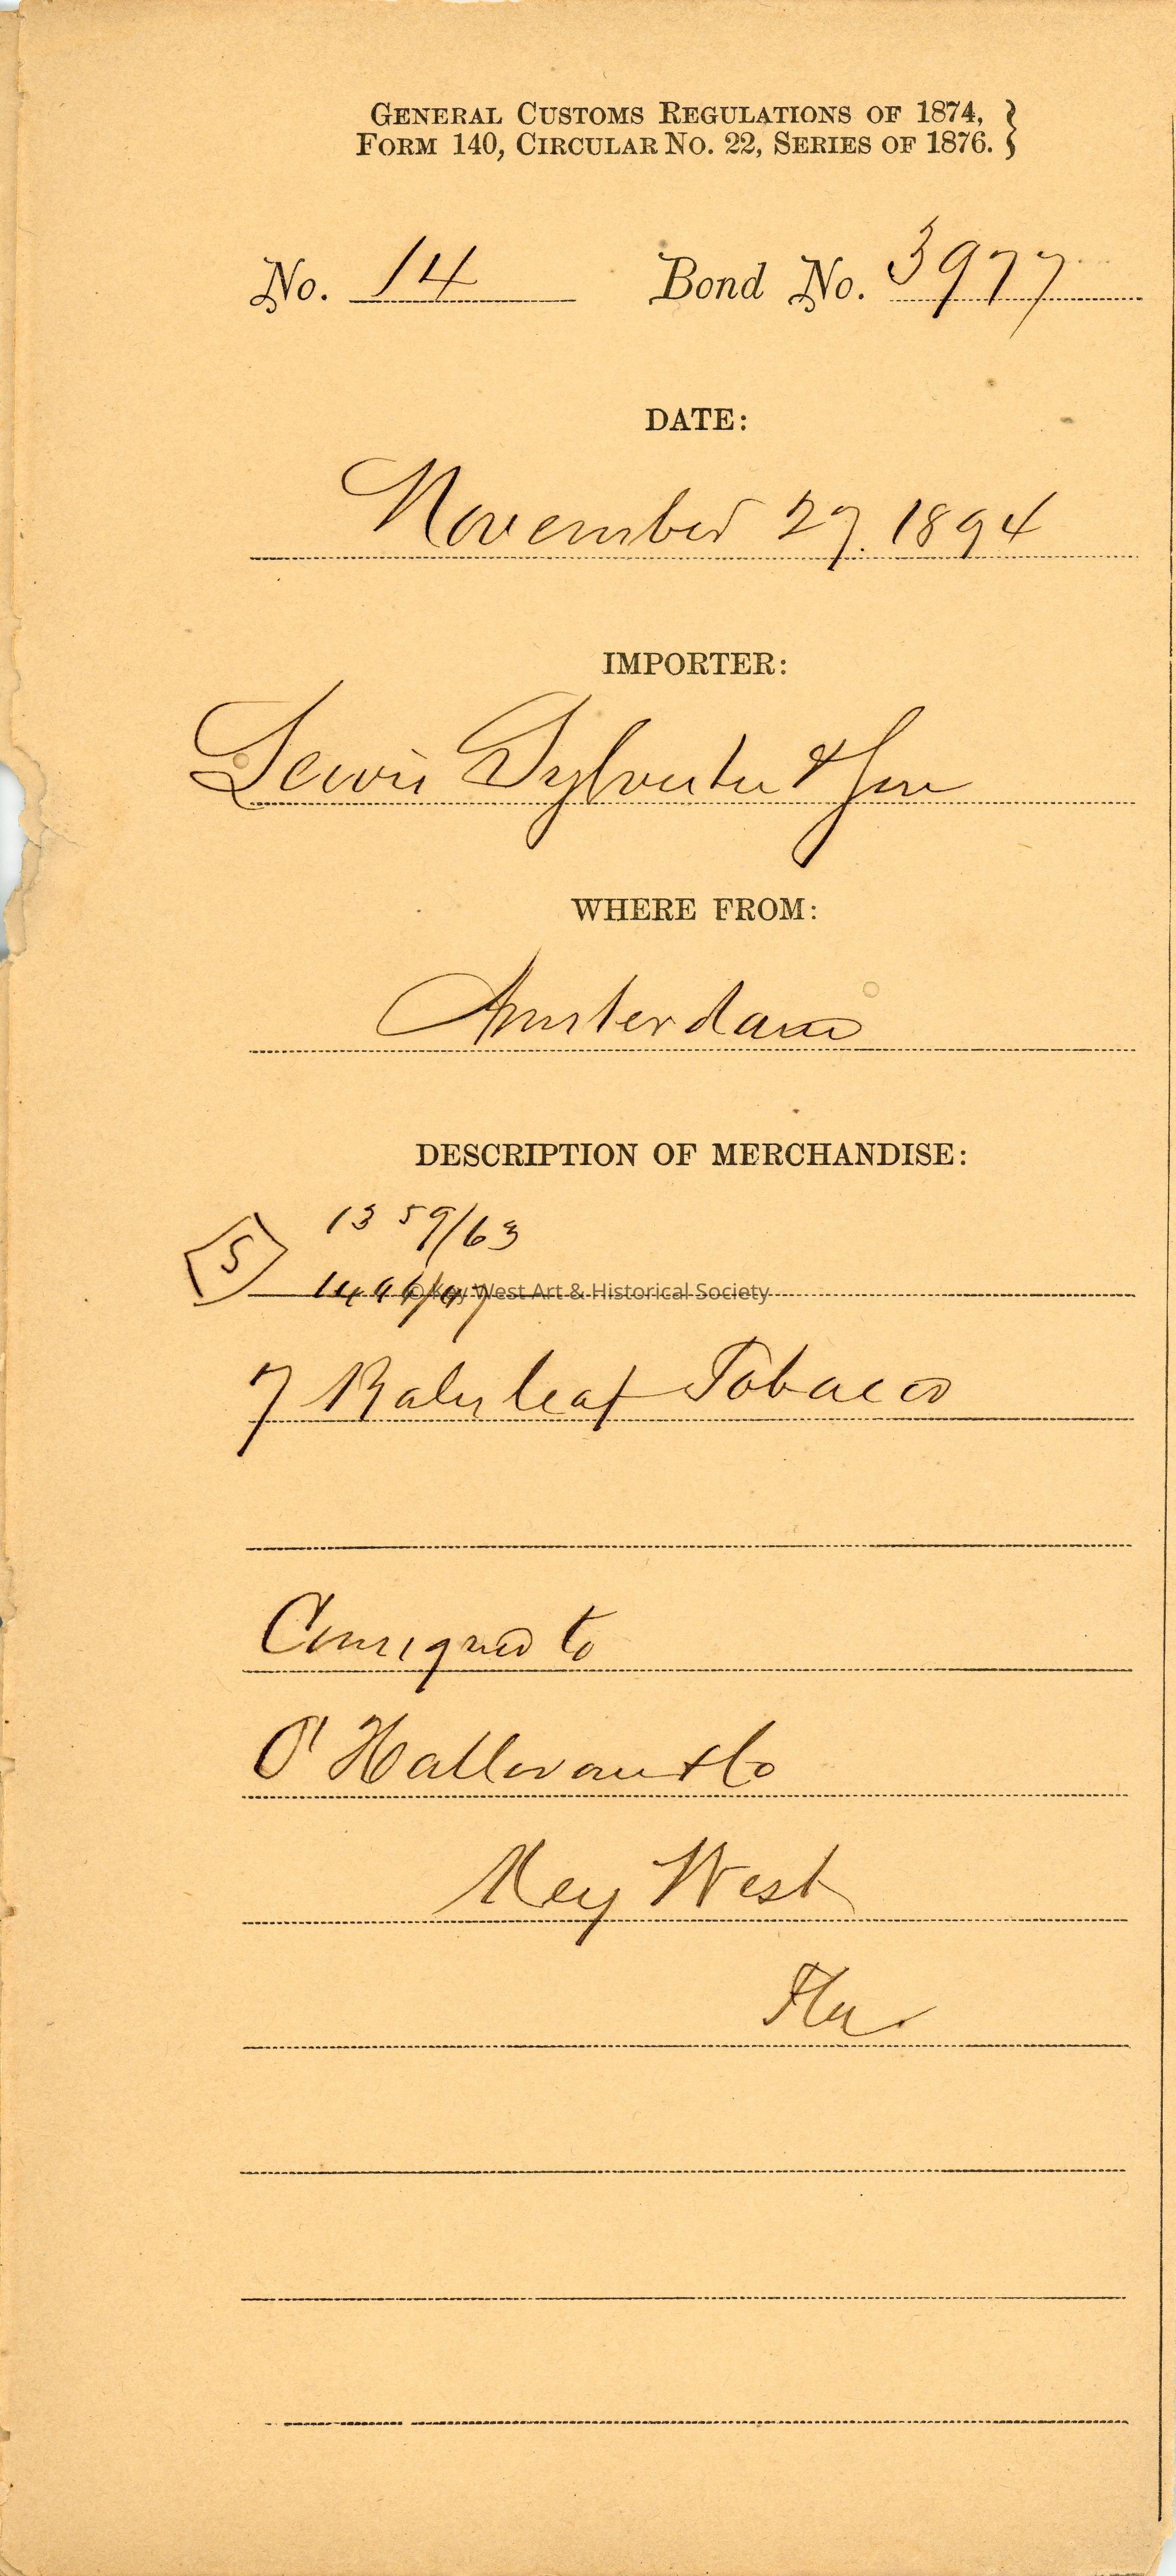 GENERAL CUSTOMS REGULATIONS OF 1874, }
FORM 140, CIRCULAR NO. 22, SERIES OF 1876.
No. 14 Bond No. 3977
DATE:
November 27. 1894
IMPORTER:
Lewis Sylvester & Son
WHERE FROM:
Amsterdam
DESCRIPTION OF MERCHANDISE:
S 1359/63
1496/97
© Key West Art & Historical Society
7 Bales leaf Tobacco
Consigned to
O'Halloran & Co
Key West
Fla.